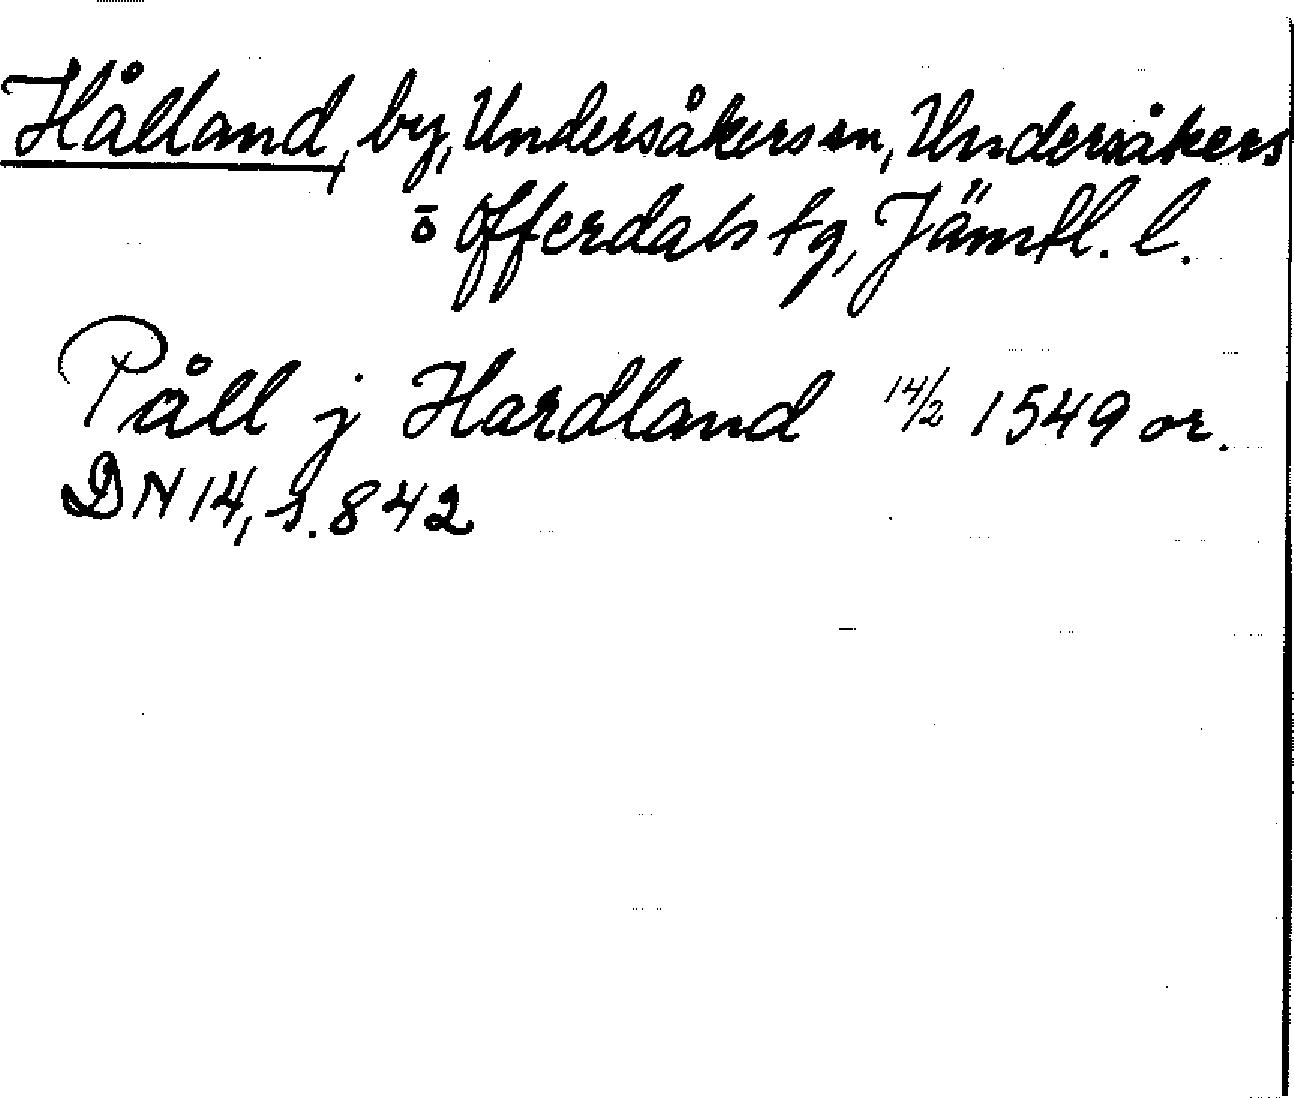 Hålland, by, Undersåkers sn, Undersåkers
o̅ Offerdals tg, Jämtl. l.
Påll j Hardland 14/2 1549 or.
DN 14, s. 842